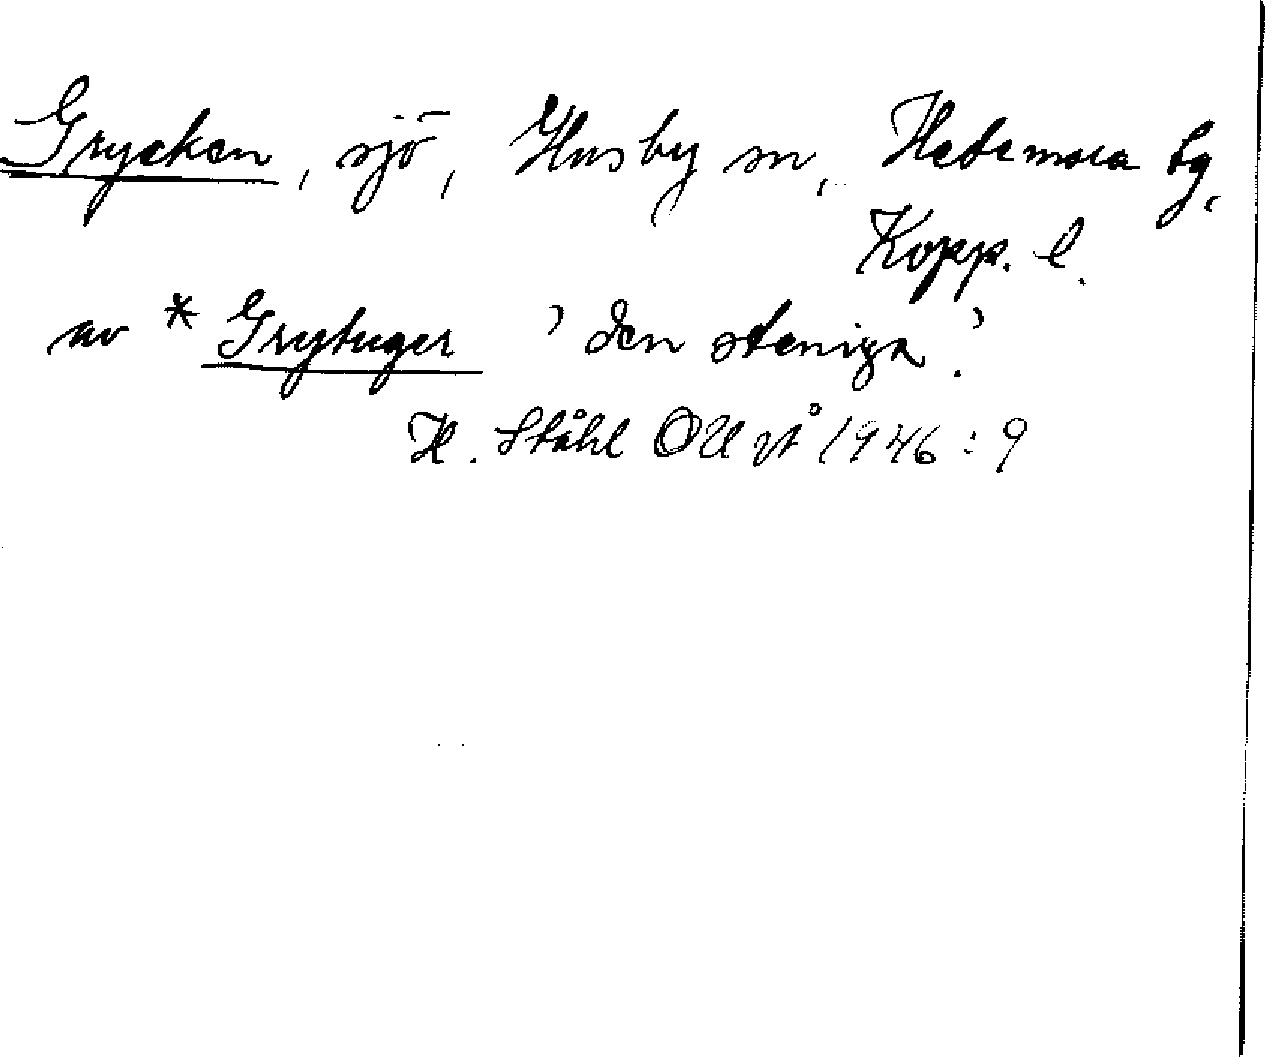 Grycken, sjö, Husby sn, Hedemora tg,
Kopp. l.
av *Grytuger 'den steniga'.
H. Ståhl OUÅ 1946:9